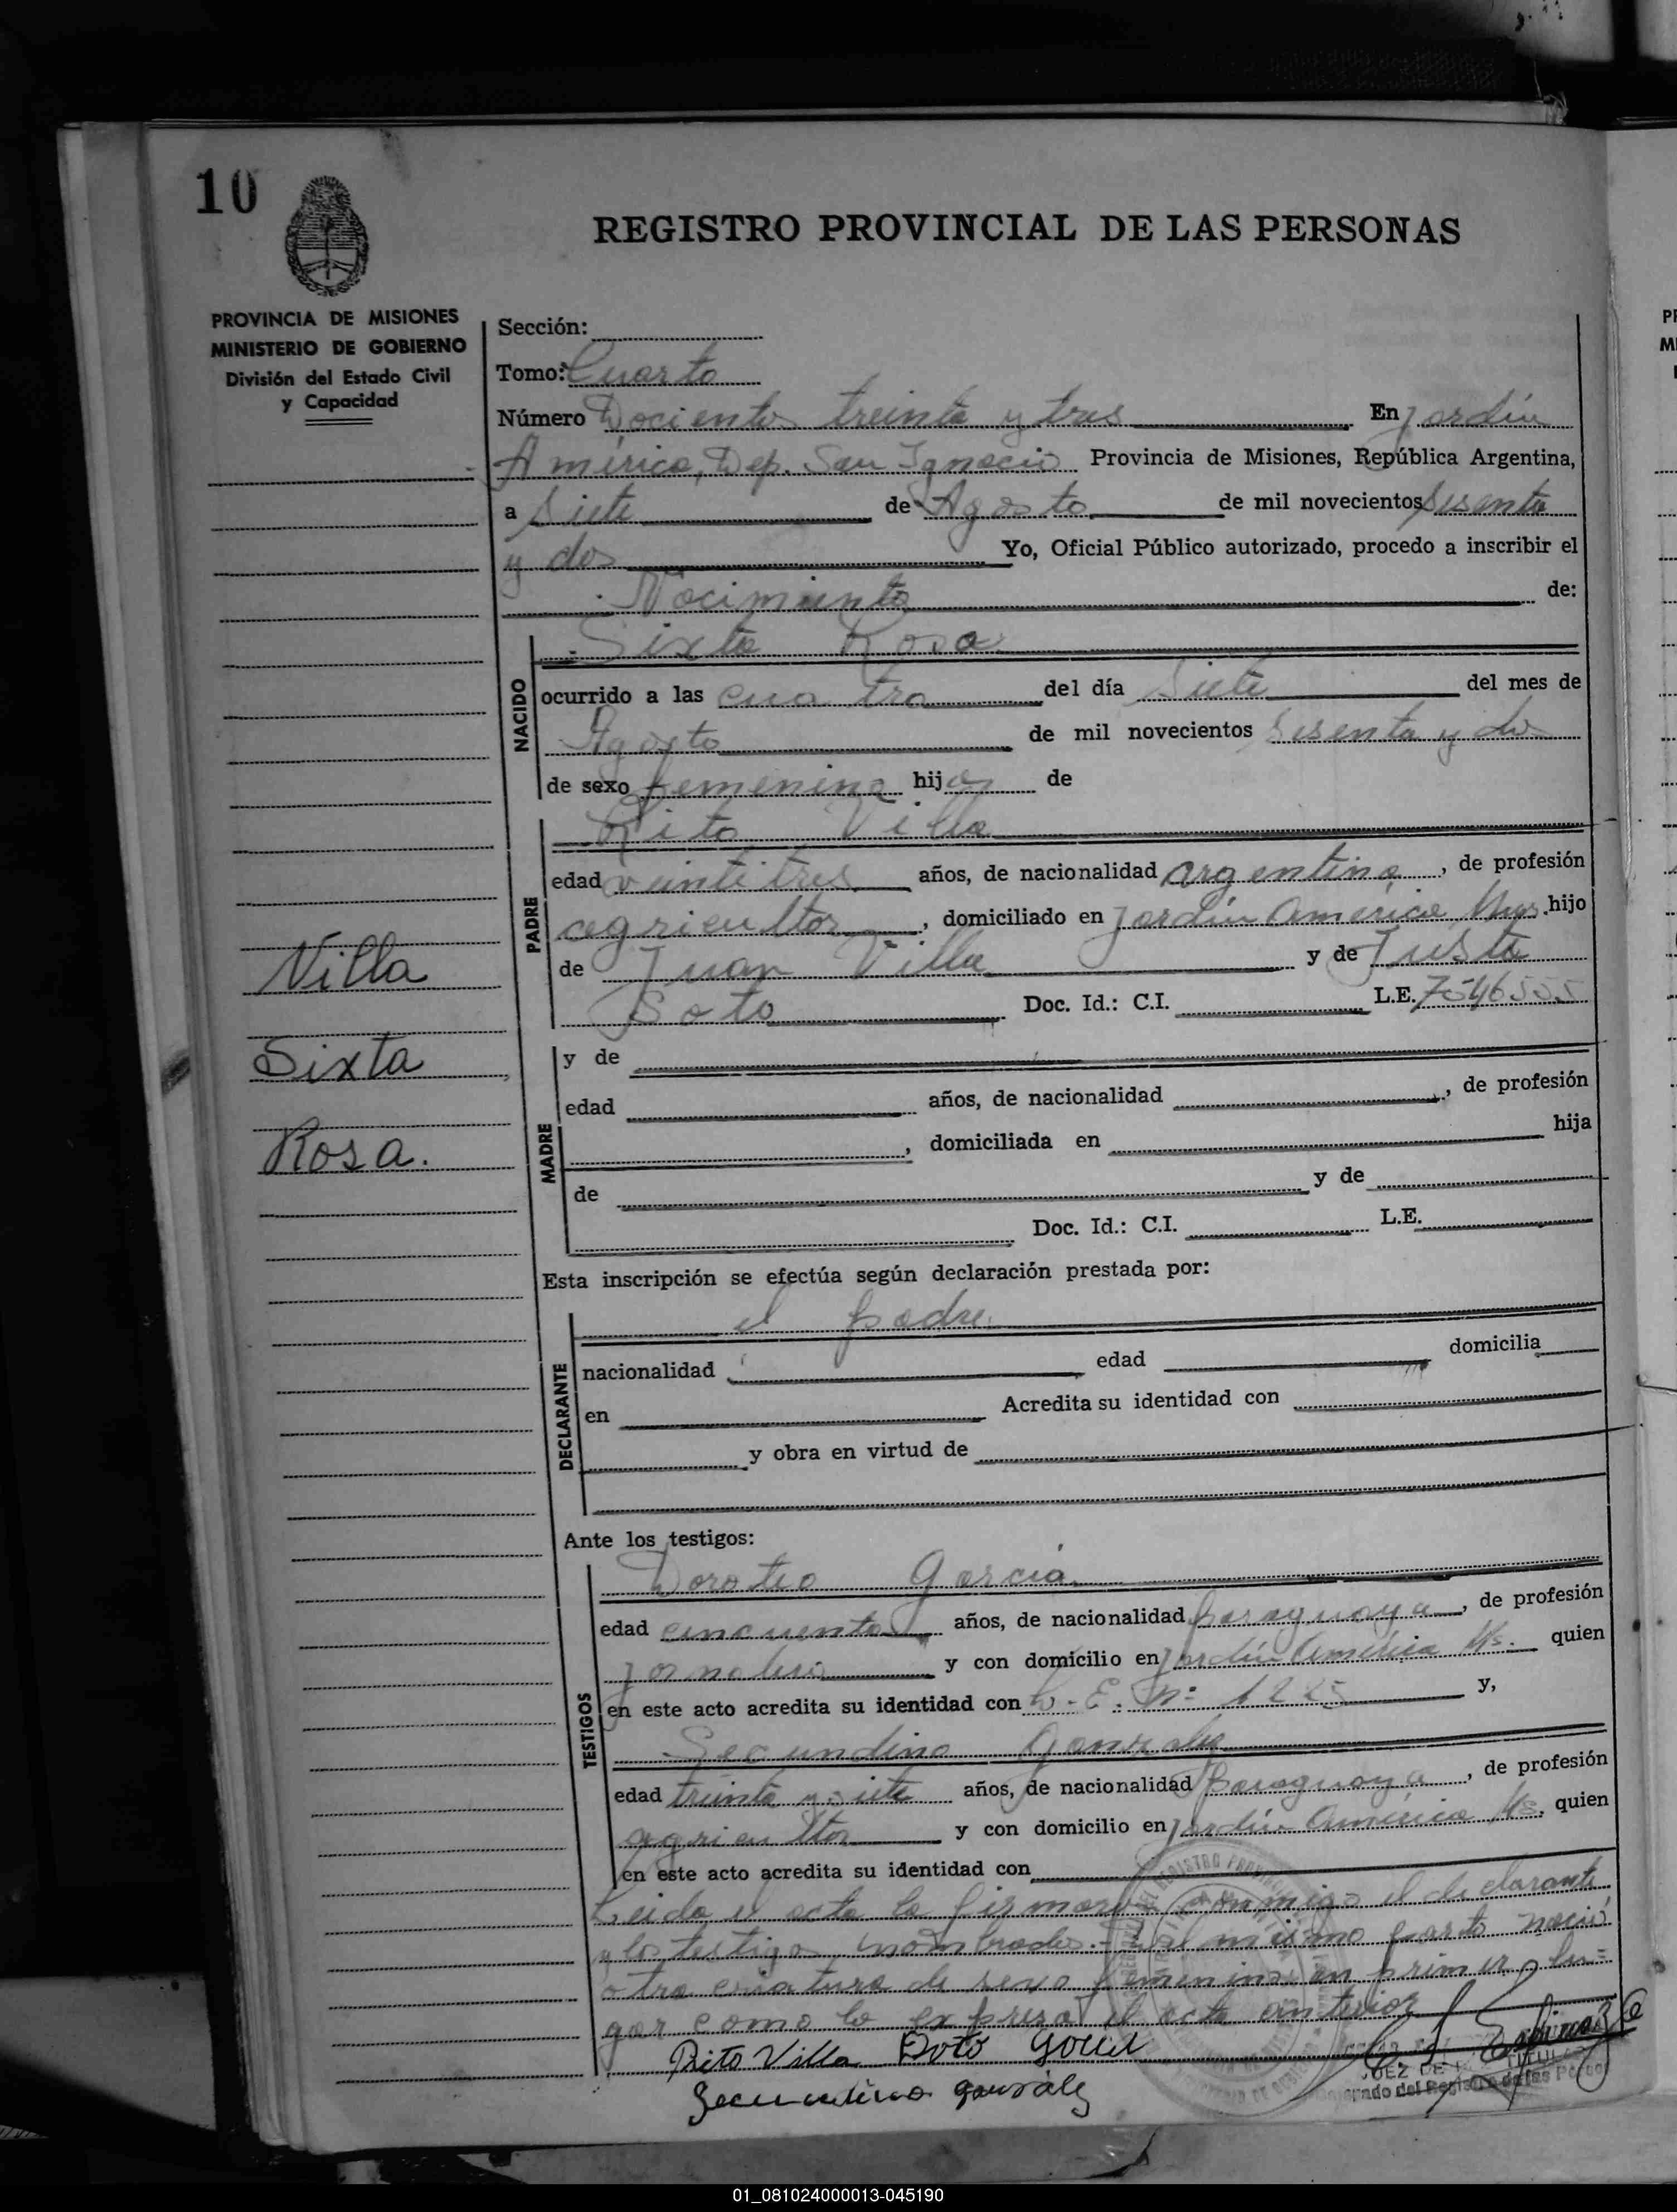 10
REGISTRO PROVINCIAL DE LAS PERSONAS
PROVINCIA DE MISIONES
MINISTERIO DE GOBIERNO
División del Estado Civil
y Capacidad
Sección:
Tomo: Cuarto
Número Docientos treinta y tres En Jardín
América, Dep. San Ignacio Provincia de Misiones, República Argentina,
a Siete de Agosto de mil novecientos sesenta
y dos Yo, Oficial Público autorizado, procedo a inscribir el
Nacimiento de:
NACIDO
Sixta Rosa
ocurrido a las cuatro del día Siete del mes de
Agosto de mil novecientos sesenta y dos
de sexo femenino hija de
PADRE
Rito Villa
edad veintitres años, de nacionalidad argentina, de profesión
agricultor, domiciliado en Jardín América Mnes. hijo
de Juan Villa y de Justa
Soto Doc. Id.: C.I. L.E. 7546555
Villa
Sixta
Rosa.
MADRE
y de
edad años, de nacionalidad , de profesión
, domiciliada en hija
de y de
Doc. Id.: C.I. L.E.
Esta inscripción se efectúa según declaración prestada por:
DECLARANTE
el padre.
nacionalidad edad domicilia
en Acredita su identidad con
y obra en virtud de
Ante los testigos:
TESTIGOS
Doroteo Garcia
edad cincuenta años, de nacionalidad paraguaya, de profesión
jornalero y con domicilio en Jardín América Ms. quien
en este acto acredita su identidad con Nº 1225 y,
Secundino Gonzalez
edad treinta y siete años, de nacionalidad Paraguaya, de profesión
agricultor y con domicilio en Jardín América Ms. quien
en este acto acredita su identidad con
Leida el acta la firman conmigo el declarante
y los testigos nombrados.- del mismo parto nació
otra criatura de sexo femenino en primer lu=
gar como lo expresa el acta anterior
Rito Villa Doto
Secundino gonzalez
JUEZ DE
del Registro de las
01_081024000013-045190